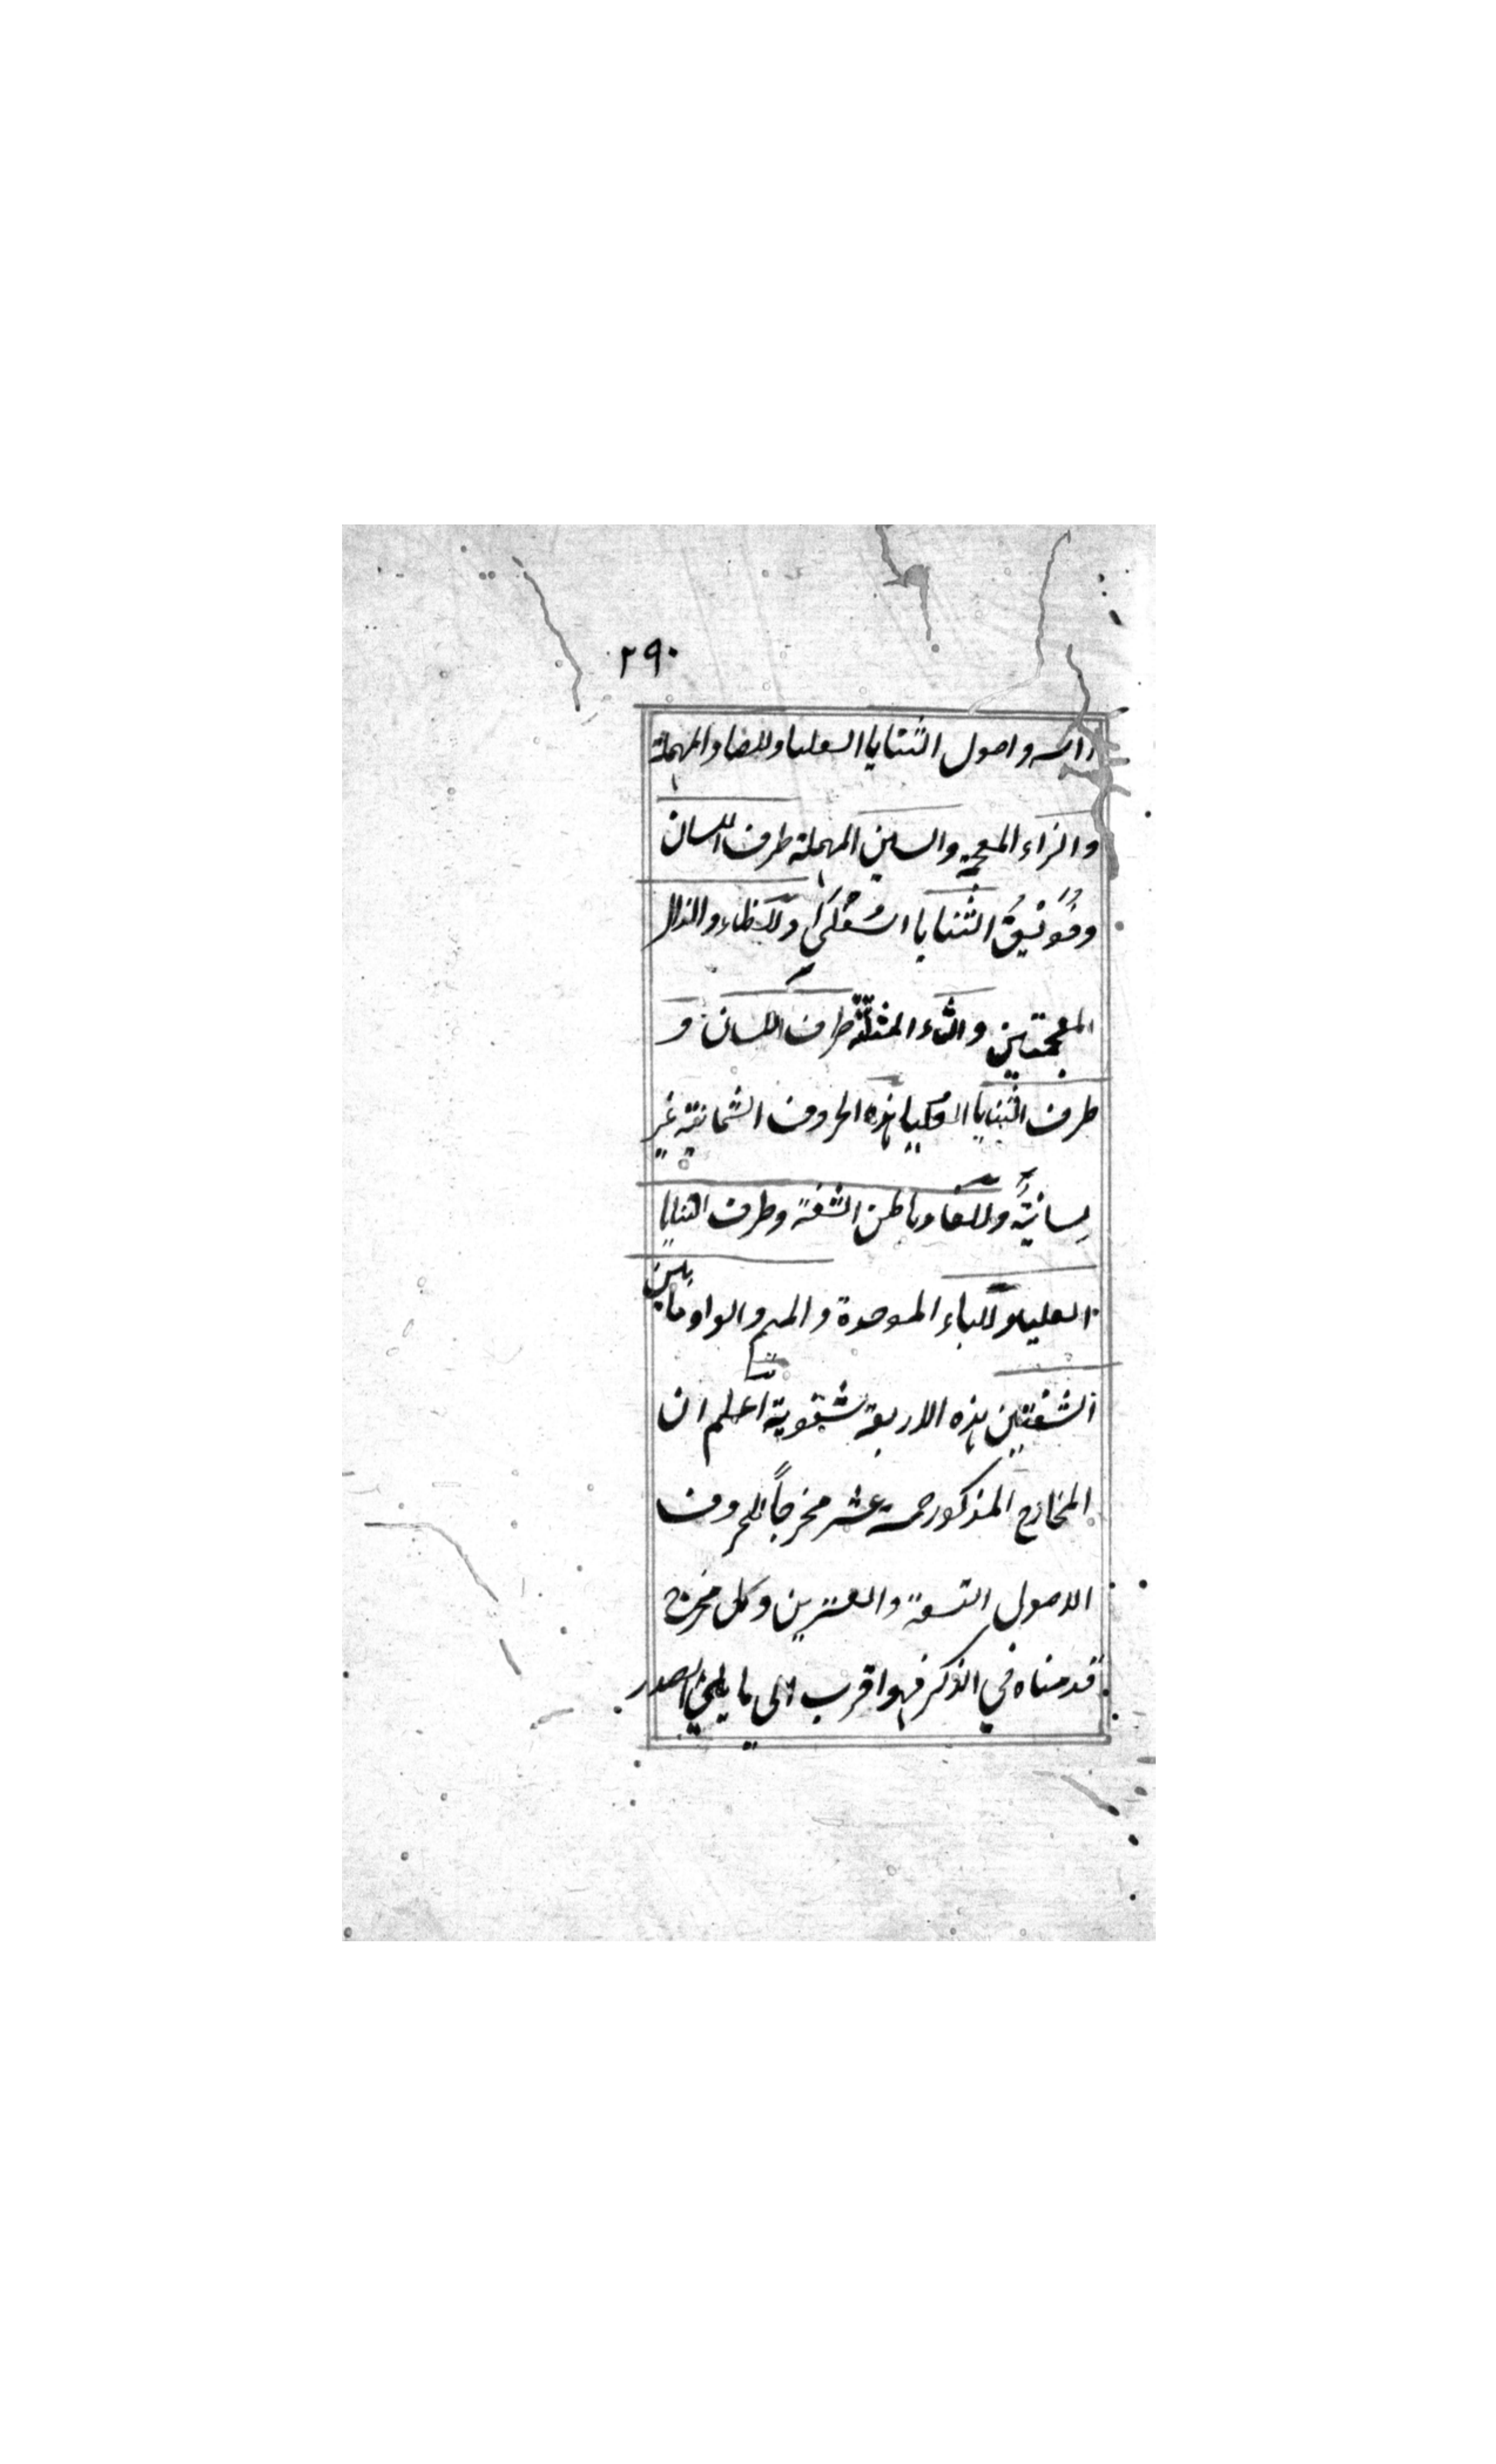 ٢٩٠
راسه واصول الثنايا العليا وللصاد المهملة
والزاء المعجمة والسين المهملة طرف اللسان
وفُوَيْقُ الثنايا السُفْلَى وللظاء والذال
المعجمتين والثاء المثلثة طرف اللسان و
طرف الثنايا العُليا هذه الحروف الثمانية غير
لسانيةً وللفاء وباطن الشفة وطرف الثنايا
العليا وللباء الموحدة والميم والواو ما بين
الشفتين هذه الاربعة شفوية اعلم ان
المخارج المذكورة خمسة عشر مخرجاً للحروف
الاصول التسعة والعشرين وكل مخرج
قدمناه في الذكر فهو اقرب الى ما يلي الصدر